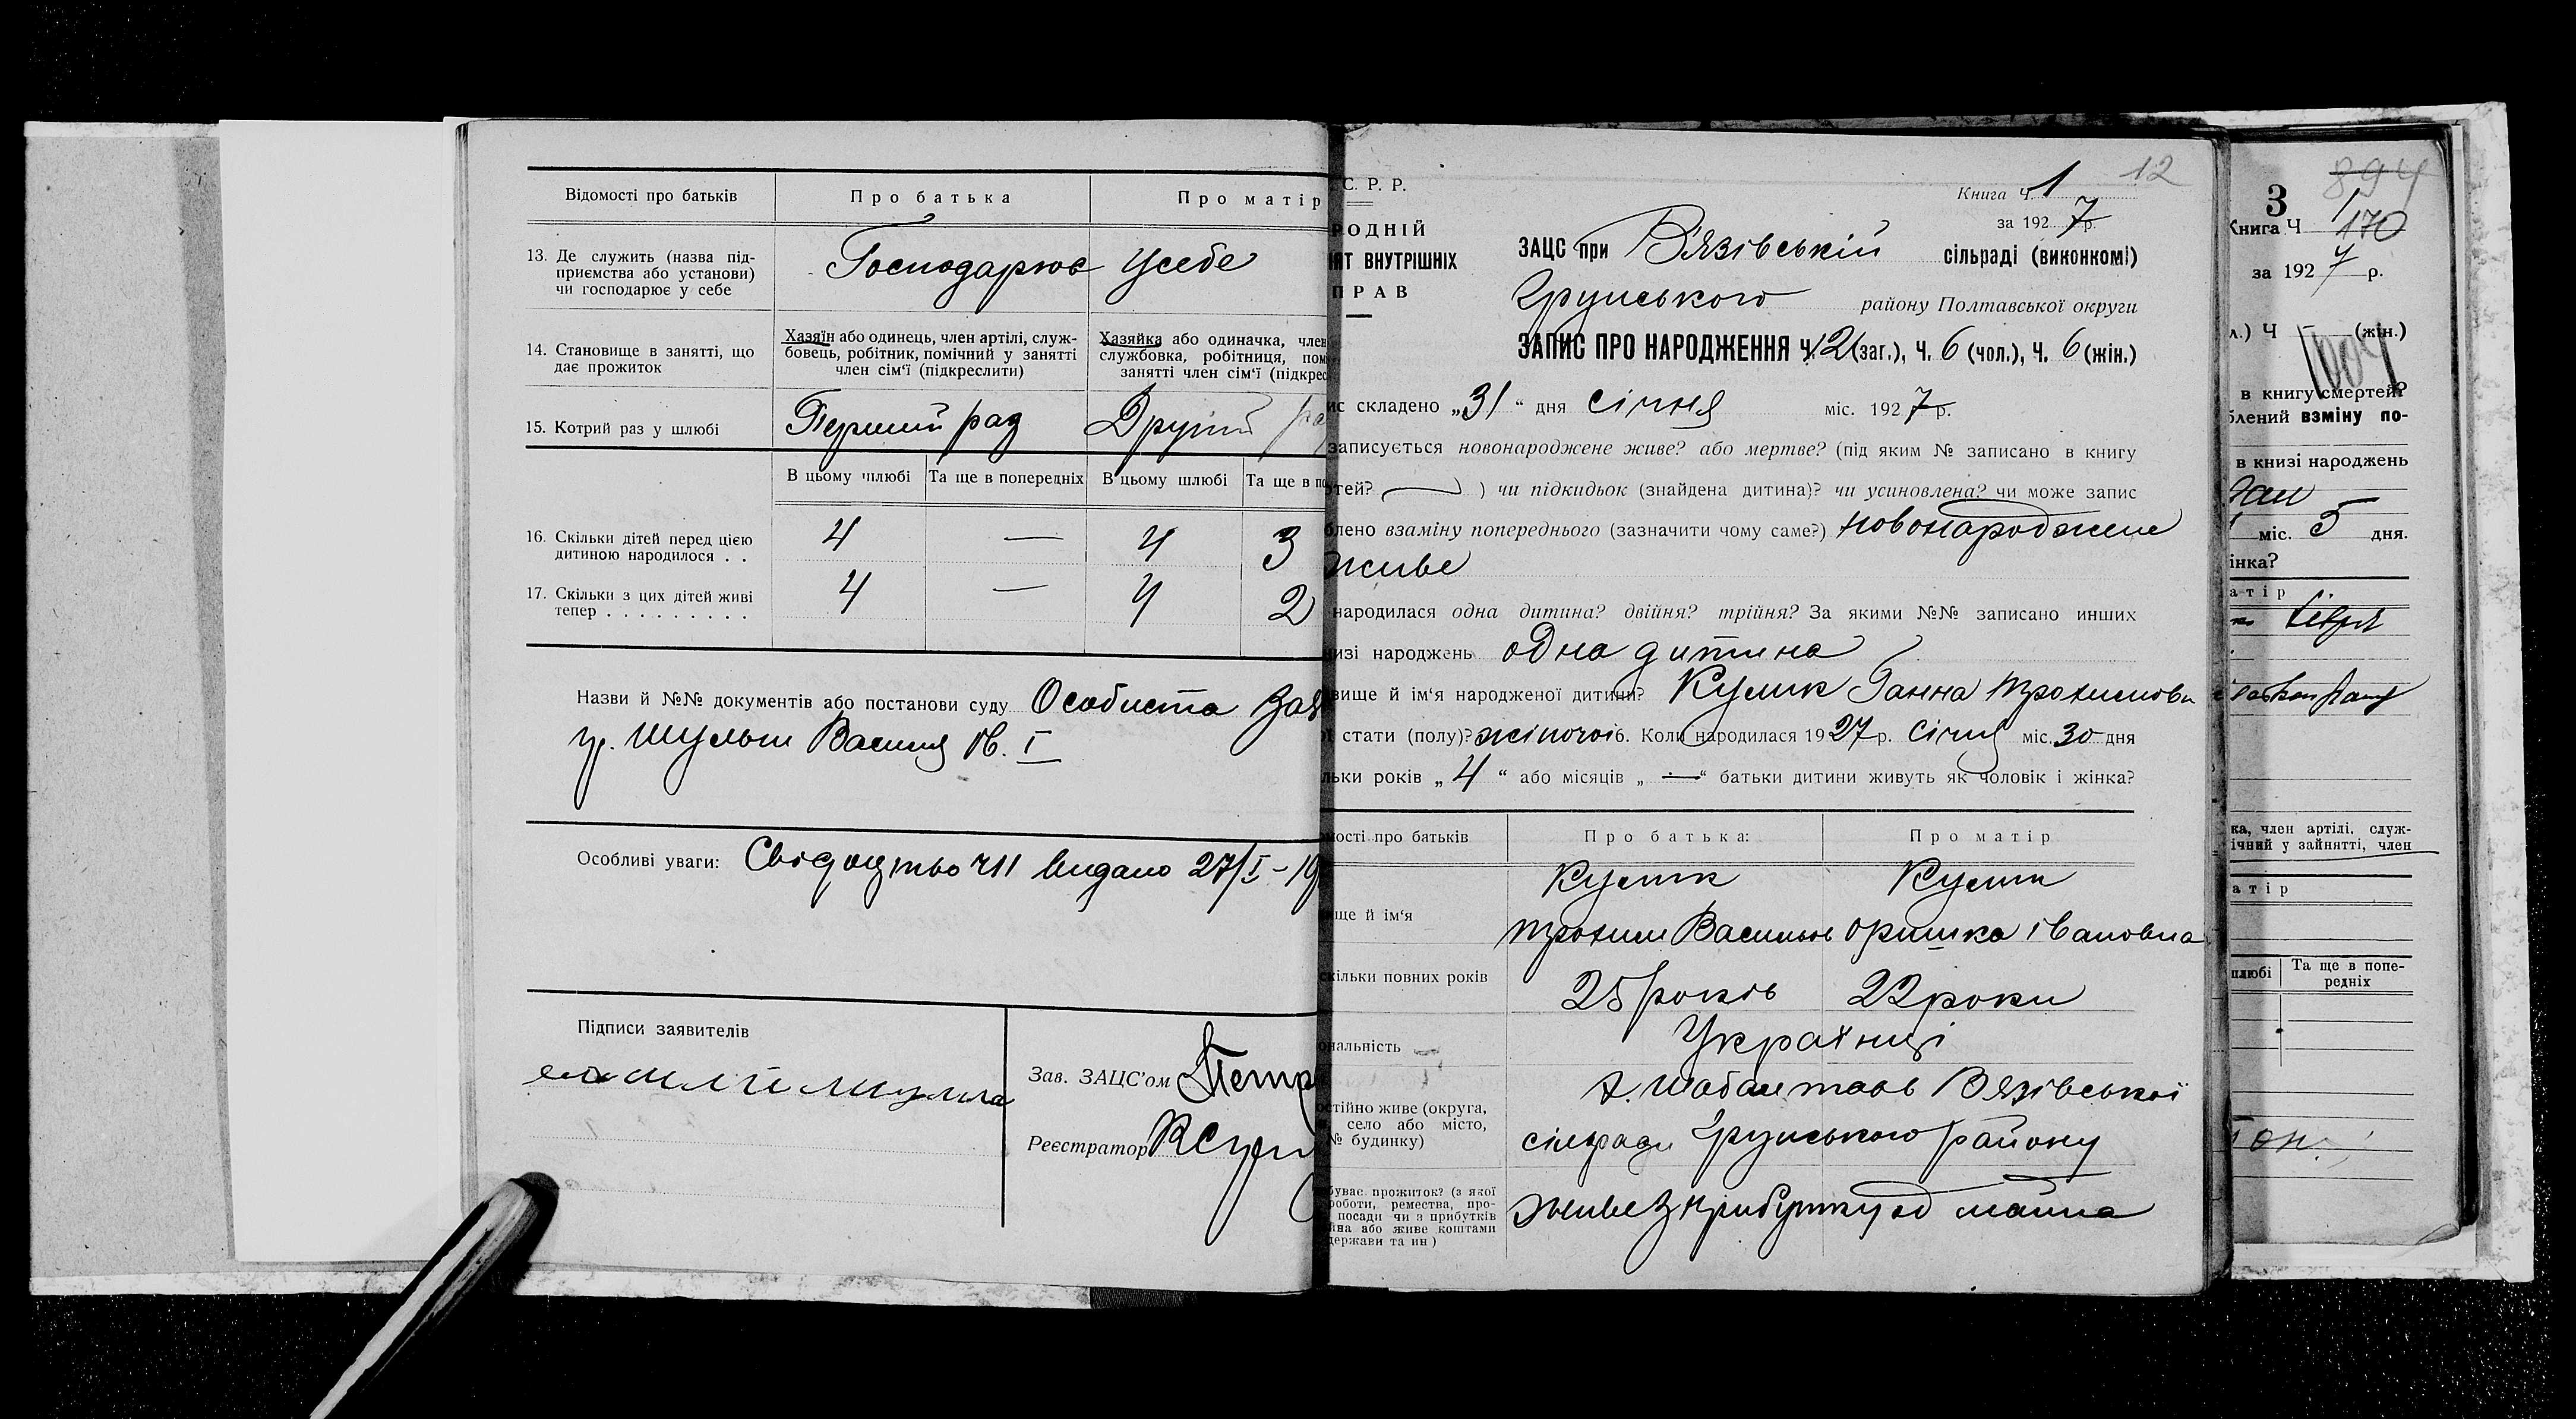 Відомості про батьків
Про батька
Про матір
13. Де служить (назва під-
приємства або установи)
чи господарює у себе
Господарює усебе
14. Становище в занятті, що
дає прожиток
Хазяїн або одинець, член артілі, служ-
бовець, робітник, помічний у занятті
член сім'ї (підкреслити)
Хазяйка або одиначка, член
службовка, робітниця, пом
занятті член сім'ї (підкрес
15. Котрий раз у шлюбі
Перший раз
Другий ра
В цьому шлюбі
Та ще в попередніх
В цьому шлюбі
Та ще в по
16. Скільки дітей перед цією
дитиною народилося . .
4 — 4 3
17. Скільки з цих дітей живі
тепер . . . . . . . . .
4 — 4 2
Назви й №№ документів або постанови суду Особиста зая
гр. Шульги Василя Ів. I
Особливі уваги: Свідоцтво Ч11 видано 27/I-19
Підписи заявителів
Зав. ЗАЦС'ом Петр
Реєстратор
С. Р. Р.
РОДНІЙ
ІЯТ ВНУТРІШНІХ
ПРАВ
12
Книга Ч. 1
за 1927р.
ЗАЦС при В'язівській сільраді (виконкомі)
Грунського району Полтавської округи
ЗАПИС ПРО НАРОДЖЕННЯ Ч. 12 (заг.), Ч. 6 (чол.), Ч. 6 (жін.)
ис складено „31“ дня січня міс. 1927р.
записується новонароджене живе? або мертве? (під яким № записано в книгу
ртей? ) чи підкидьок (знайдена дитина)? чи усиновлена? чи може запис
блено взаміну попереднього (зазначити чому саме?) новонароджене
живе
народилася одна дитина? двійня? трійня? За якими №№ записано инших
изі народжень одна дитина
вище й ім'я народженої дитини? Кулик Ганна Трохимовн
стати (полу)? жіночої 6. Коли народилася 1927р. січня міс. 30 дня
льки років „4“ або місяців „—“ батьки дитини живуть як чоловік і жінка?
мості про батьків
Про батька:
Про матір
ище й ім'я
Кулик
Трохим Васильов
Кулик
Оришка Івановна
скільки повних років
25 років
22 роки
ональність
Українці
остійно живе (округа,
село або місто,
№ будинку)
х. Шабалтаєв Вязівської
сільради Грунського району
буває прожиток? (з якої
роботи, ремества, про-
посади чи з прибутків
йна або живе коштами
держави та ин)
живе з прибутку од майна
894
3
Книга Ч 1
170
за 1927 р.
л.) Ч — (жін.)
1004
в книгу смертей?
блений взміну по-
в книзі народжень
міс. 5 дня.
інка?
атір
ка, член артілі, служ-
ічний у зайнятті, член
атір
шлюбі
Та ще в попе-
редніх